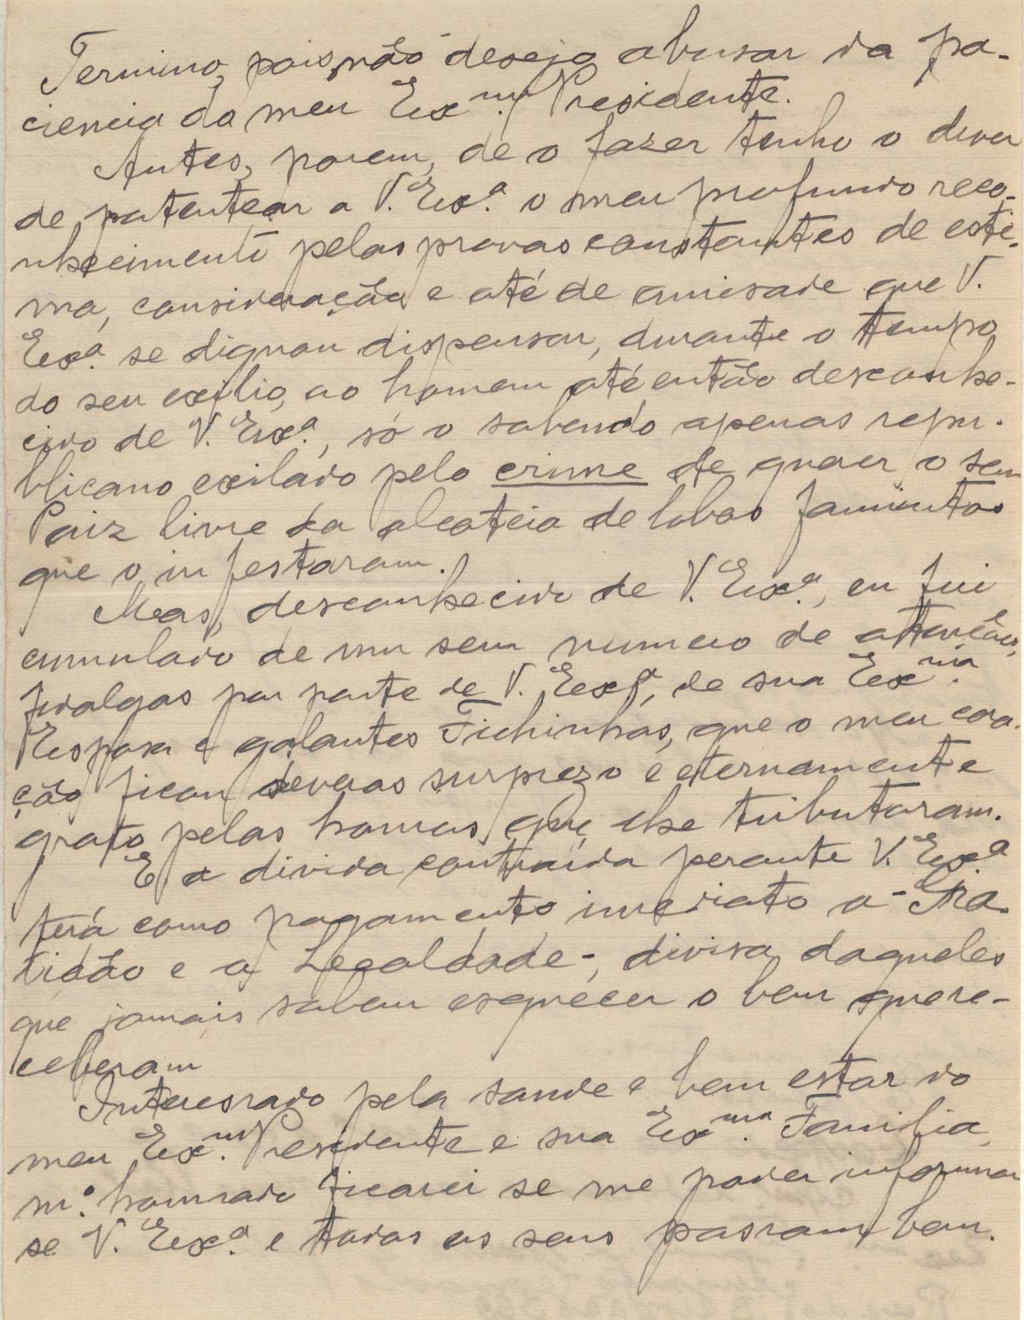 Termino, pois não desejo abusar da pa-
ciencia do meu Ex.mo Presidente.
Antes, porem, de o fazer tenho o dever
de patentear a V. Ex.a o meu profundo reco-
nhecimento pelas provas constantes de esti-
ma, consideração e até de amisade que V.
Ex.a se dignou dispensar, durante o tempo
do seu exilio, ao homem até então desconhe-
cido de V. Ex.a, só o sabendo apenas repu-
blicano exilado pelo crime de querer o seu
Paiz livre da alcateia de lobos famintos
que o infestaram.
Mas, desconhecido de V. Ex.a, eu fui
cumulado de um sem numero de attenções,
fidalgas por parte de V. Ex.a, de sua Ex.ma
Esposa e galantes Fichinhas, que o meu cora-
ção ficou deveras surprezo e eternamente
grato pelas honras que lhe tributaram.
E a divida contraída perante V. Ex.a
terá como pagamento imediato a - Gra-
tidão e a Lealdade -, divisa daqueles
que jamais sabem esquecer o bem que re-
ceberam
Interessado pela saude e bem estar do
meu Ex.mo Presidente e sua Ex.ma Familia,
m.o honrado ficarei se me poder informar
se V. Ex.a e todos os seus passam bem.